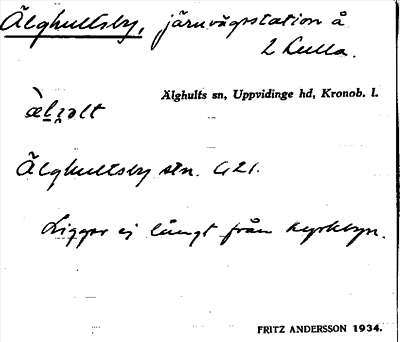 Älghultsby, järnvägsstation å
Älghults sn, Uppvidinge hd, Kronob. l.
Älghultsby stn. G21.
Ligger ej långt från kyrkbyn.
FRITZ ANDERSSON 1934.